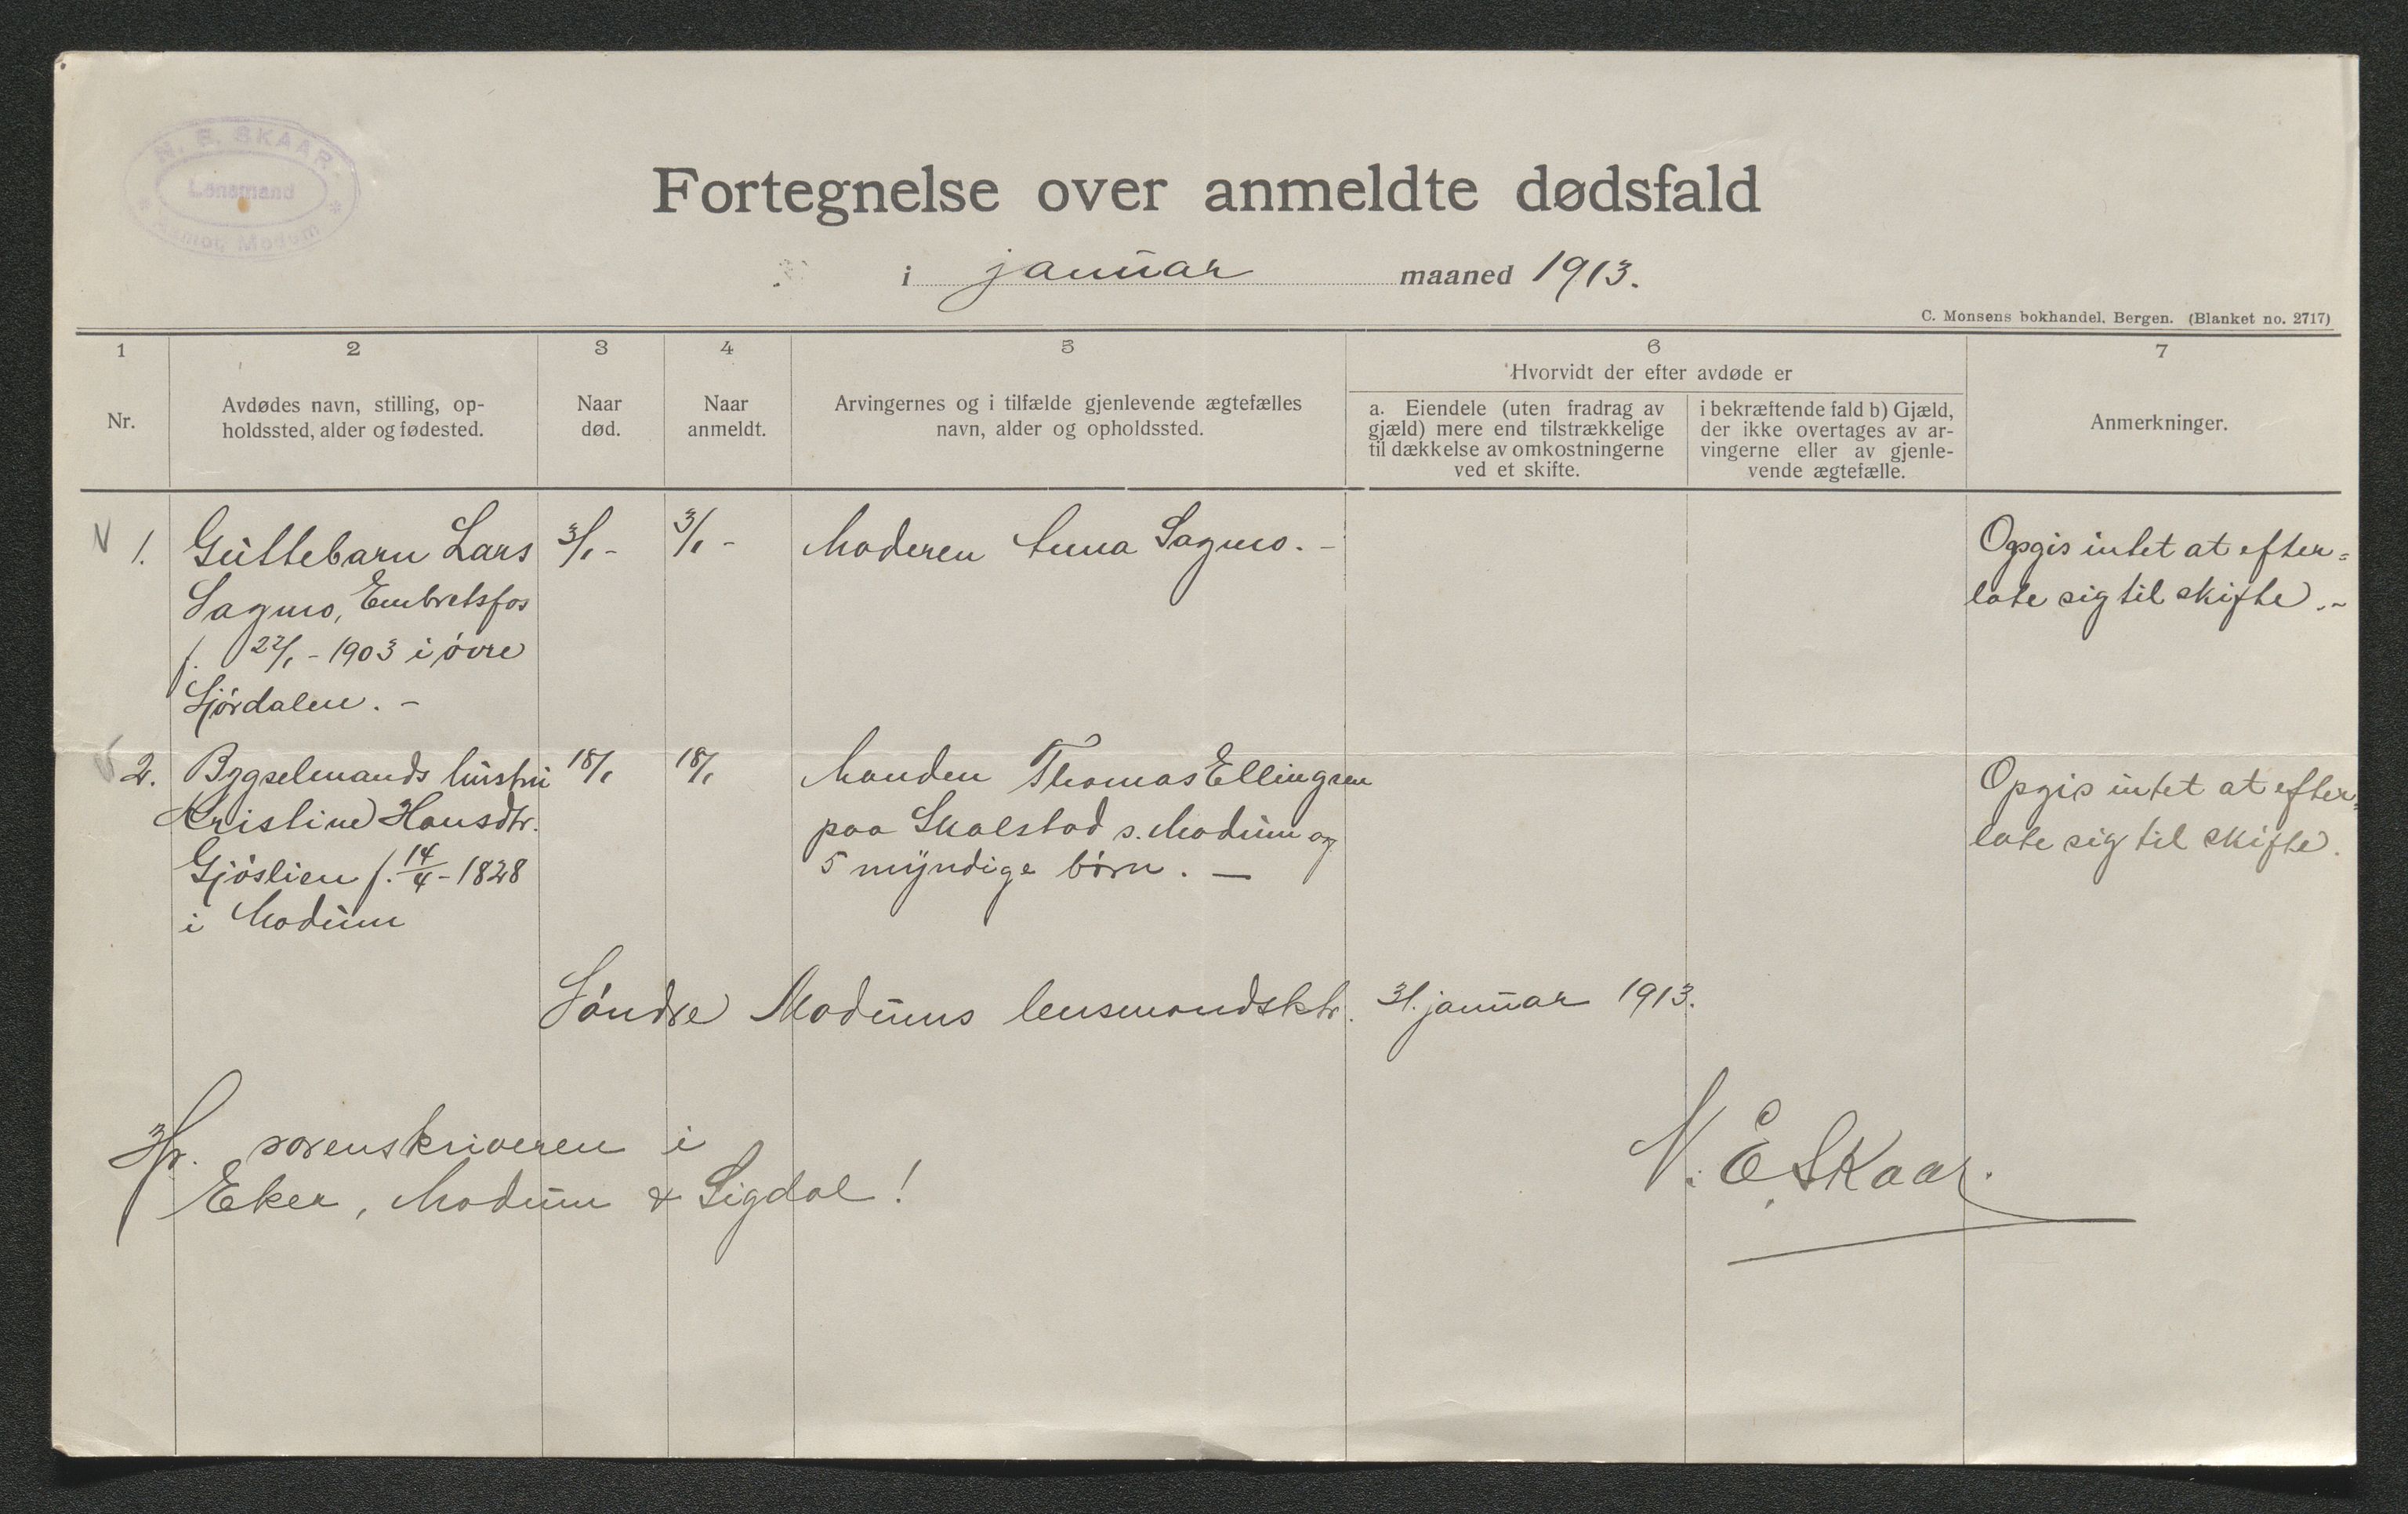 N. E. SKAAR
Lensmand
Aamot, Modum
Fortegnelse over anmeldte dødsfald
i januar maaned 1913.
C. Monsens bokhandel, Bergen. (Blanket no. 2717)
1 2 3 4 5 6 7
Hvorvidt der efter avdøde er
Nr.
Avdødes navn, stilling, op-
holdssted, alder og fødested.
Naar
død.
Naar
anmeldt.
Arvingernes og i tilfælde gjenlevende ægtefælles
navn, alder og opholdssted.
a. Eiendele (uten fradrag av
gjæld) mere end tilstrækkelige
til dækkelse av omkostningerne
ved et skifte.
i bekræftende fald b) Gjæld,
der ikke overtages av ar-
vingerne eller av gjenle-
vende ægtefælle.
Anmerkninger.
1. Guttebarn Lars
Sagmo, Embretsfos
f. 22/1 - 1903 i øvre
Sjørdalen. -
3/1 -
3/1 -
Moderen Anna Sagmo. -
Opgis intet at efter=
late sig til skifte. -
2. Bygselmands hustru
Kristine Hansdtr.
Gjøslien f. 14/4 - 1828
i Modum
18/1
18/1
Manden Thomas Ellingsen
paa Skalstad s. Modum og
5 myndige børn. -
Opgis intet at efter=
late sig til skifte.
Søndre Modums lensmandsktr. 31. januar 1913.
N. E. Skaar.
Hr. sorenskriveren i
Eker, Modum & Sigdal!